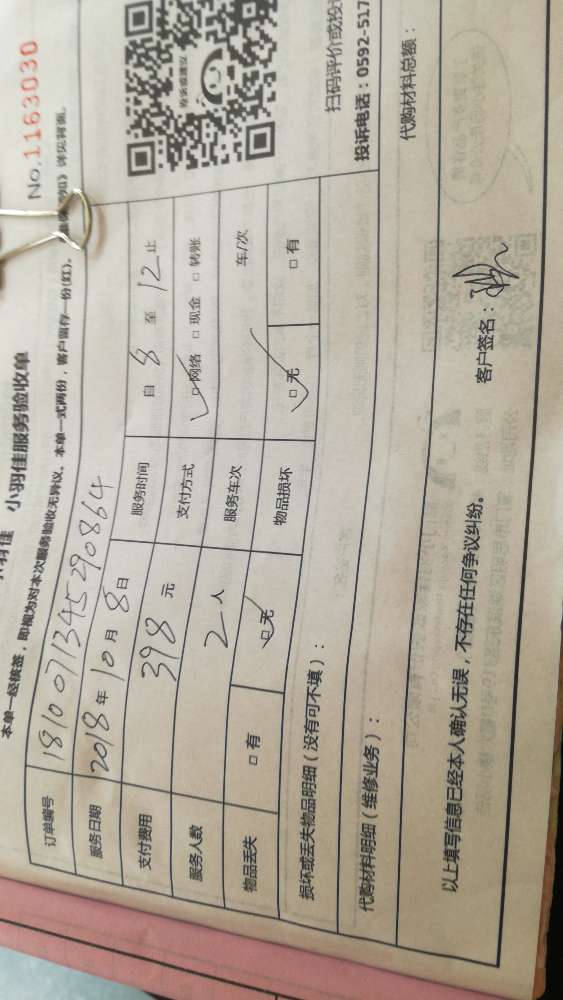 No.1163030
小羽佳服务验收单
本单一经核签，即视为对本次服务验收无异议。本单一式两份，客户留存一份(红)。
订单编号 1810071345290864
服务日期 2018年10月8日
支付费用 398元 服务时间 自8至12止
服务人数 2人 支付方式 ☑网络 □现金 □转账
服务车次 车/次
物品丢失 □有 ☑无 物品损坏 ☑无 □有
损坏或丢失物品明细（没有可不填）：
代购材料明细（维修业务）： 代购材料总额：
以上填写信息已经本人确认无误，不存在任何争议纠纷。 客户签名：
投诉或建议
扫码评价或投
投诉电话：0592-517